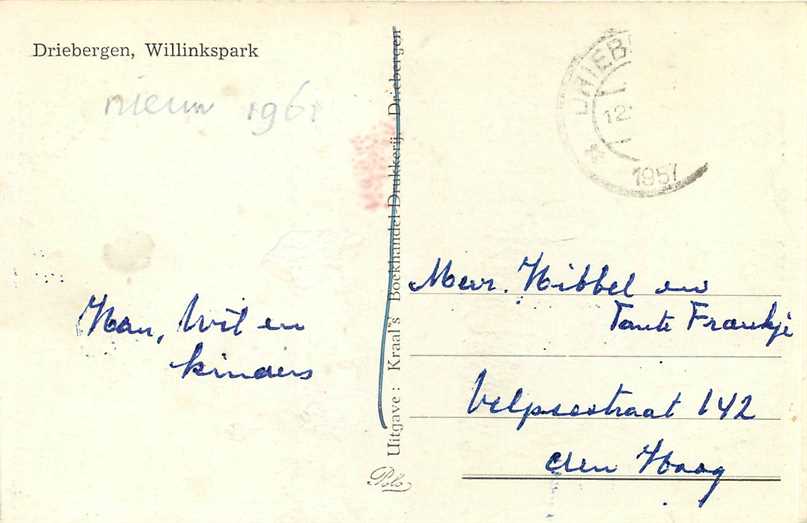 Driebergen, Willinkspark
nieuw 1961
Han, Wil en
kinders
Uitgave: Kraal's Boekhandel-Drukkerij, Driebergen
Polo
DRIEB
12
1957
Mevr. Hibbel en
Tante Framkje
Velpsestraat 142
den Haag